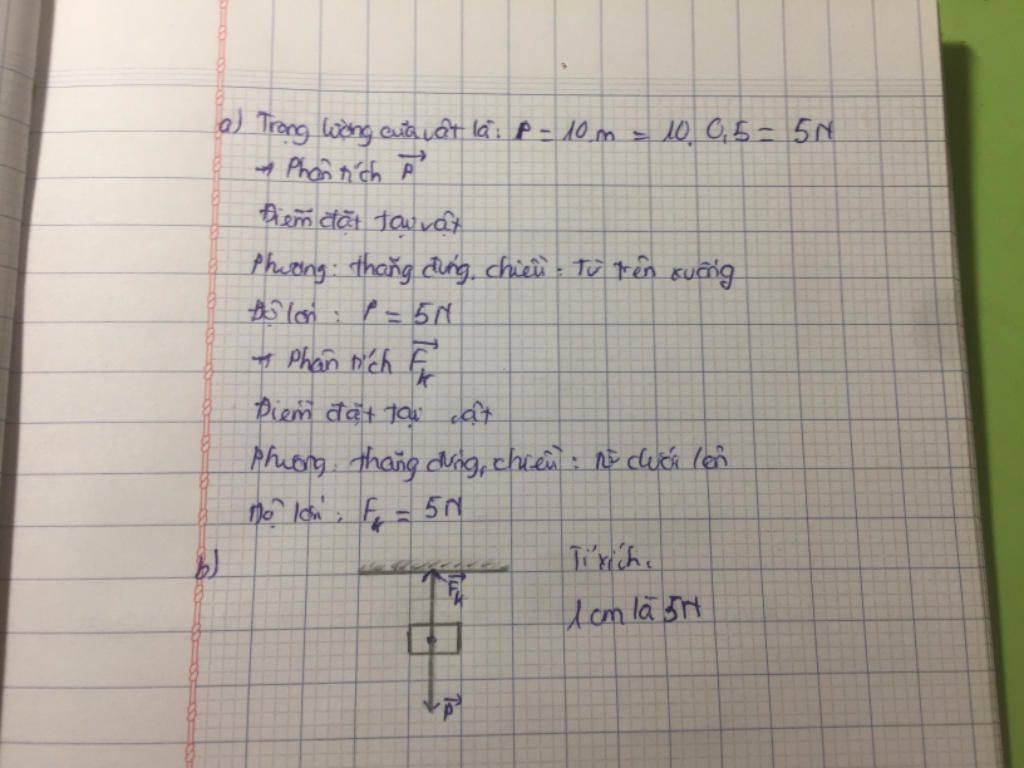 a) Trọng lượng của vật là: P = 10.m = 10. 0,5 = 5N
→ Phân tích P⃗
Điểm đặt tại vật
Phương: thẳng đứng, chiều: Từ trên xuống
Độ lớn: P = 5N
→ Phân tích F⃗k
Điểm đặt tại vật
Phương: thẳng đứng, chiều: từ dưới lên
Độ lớn: Fk = 5N
b)
F⃗k
P⃗
Tỉ xích:
1cm là 5N